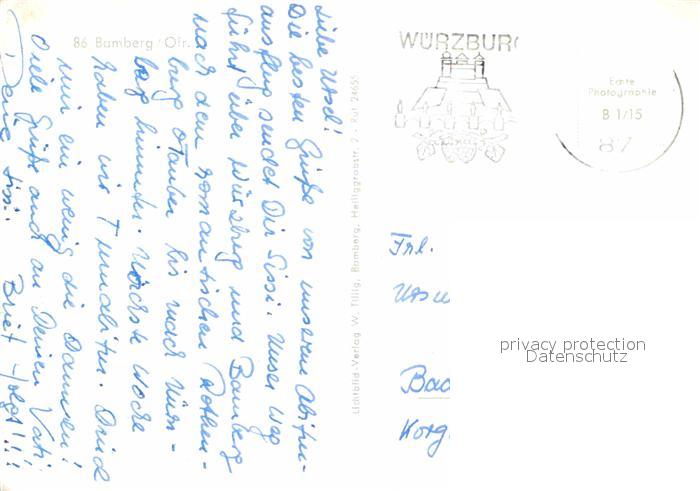 Liebe Ursel!
Die besten Grüße von unserem Abitur-
ausflug sendet Dir Sissi. Unser Weg
führt über Würzburg und Bamberg
nach dem romantischen Rothen-
burg o/Tauber bis nach Nürn-
berg hinunter. Nächste Woche
haben wir Turnabitur. Drück
mir ein wenig die Daumen!
Viele Grüße auch an Deinen Vati
Deine Sissi
Brief folgt!!!
86 Bamberg/Ofr.
Lichtbild-Verlag W. Tillig, Bamberg, Heiliggrabstr. 7 - Ruf 24655
WÜRZBUR
Echte
Photographie
B 1/15
87
Frl.
Bad
privacy protection
Datenschutz